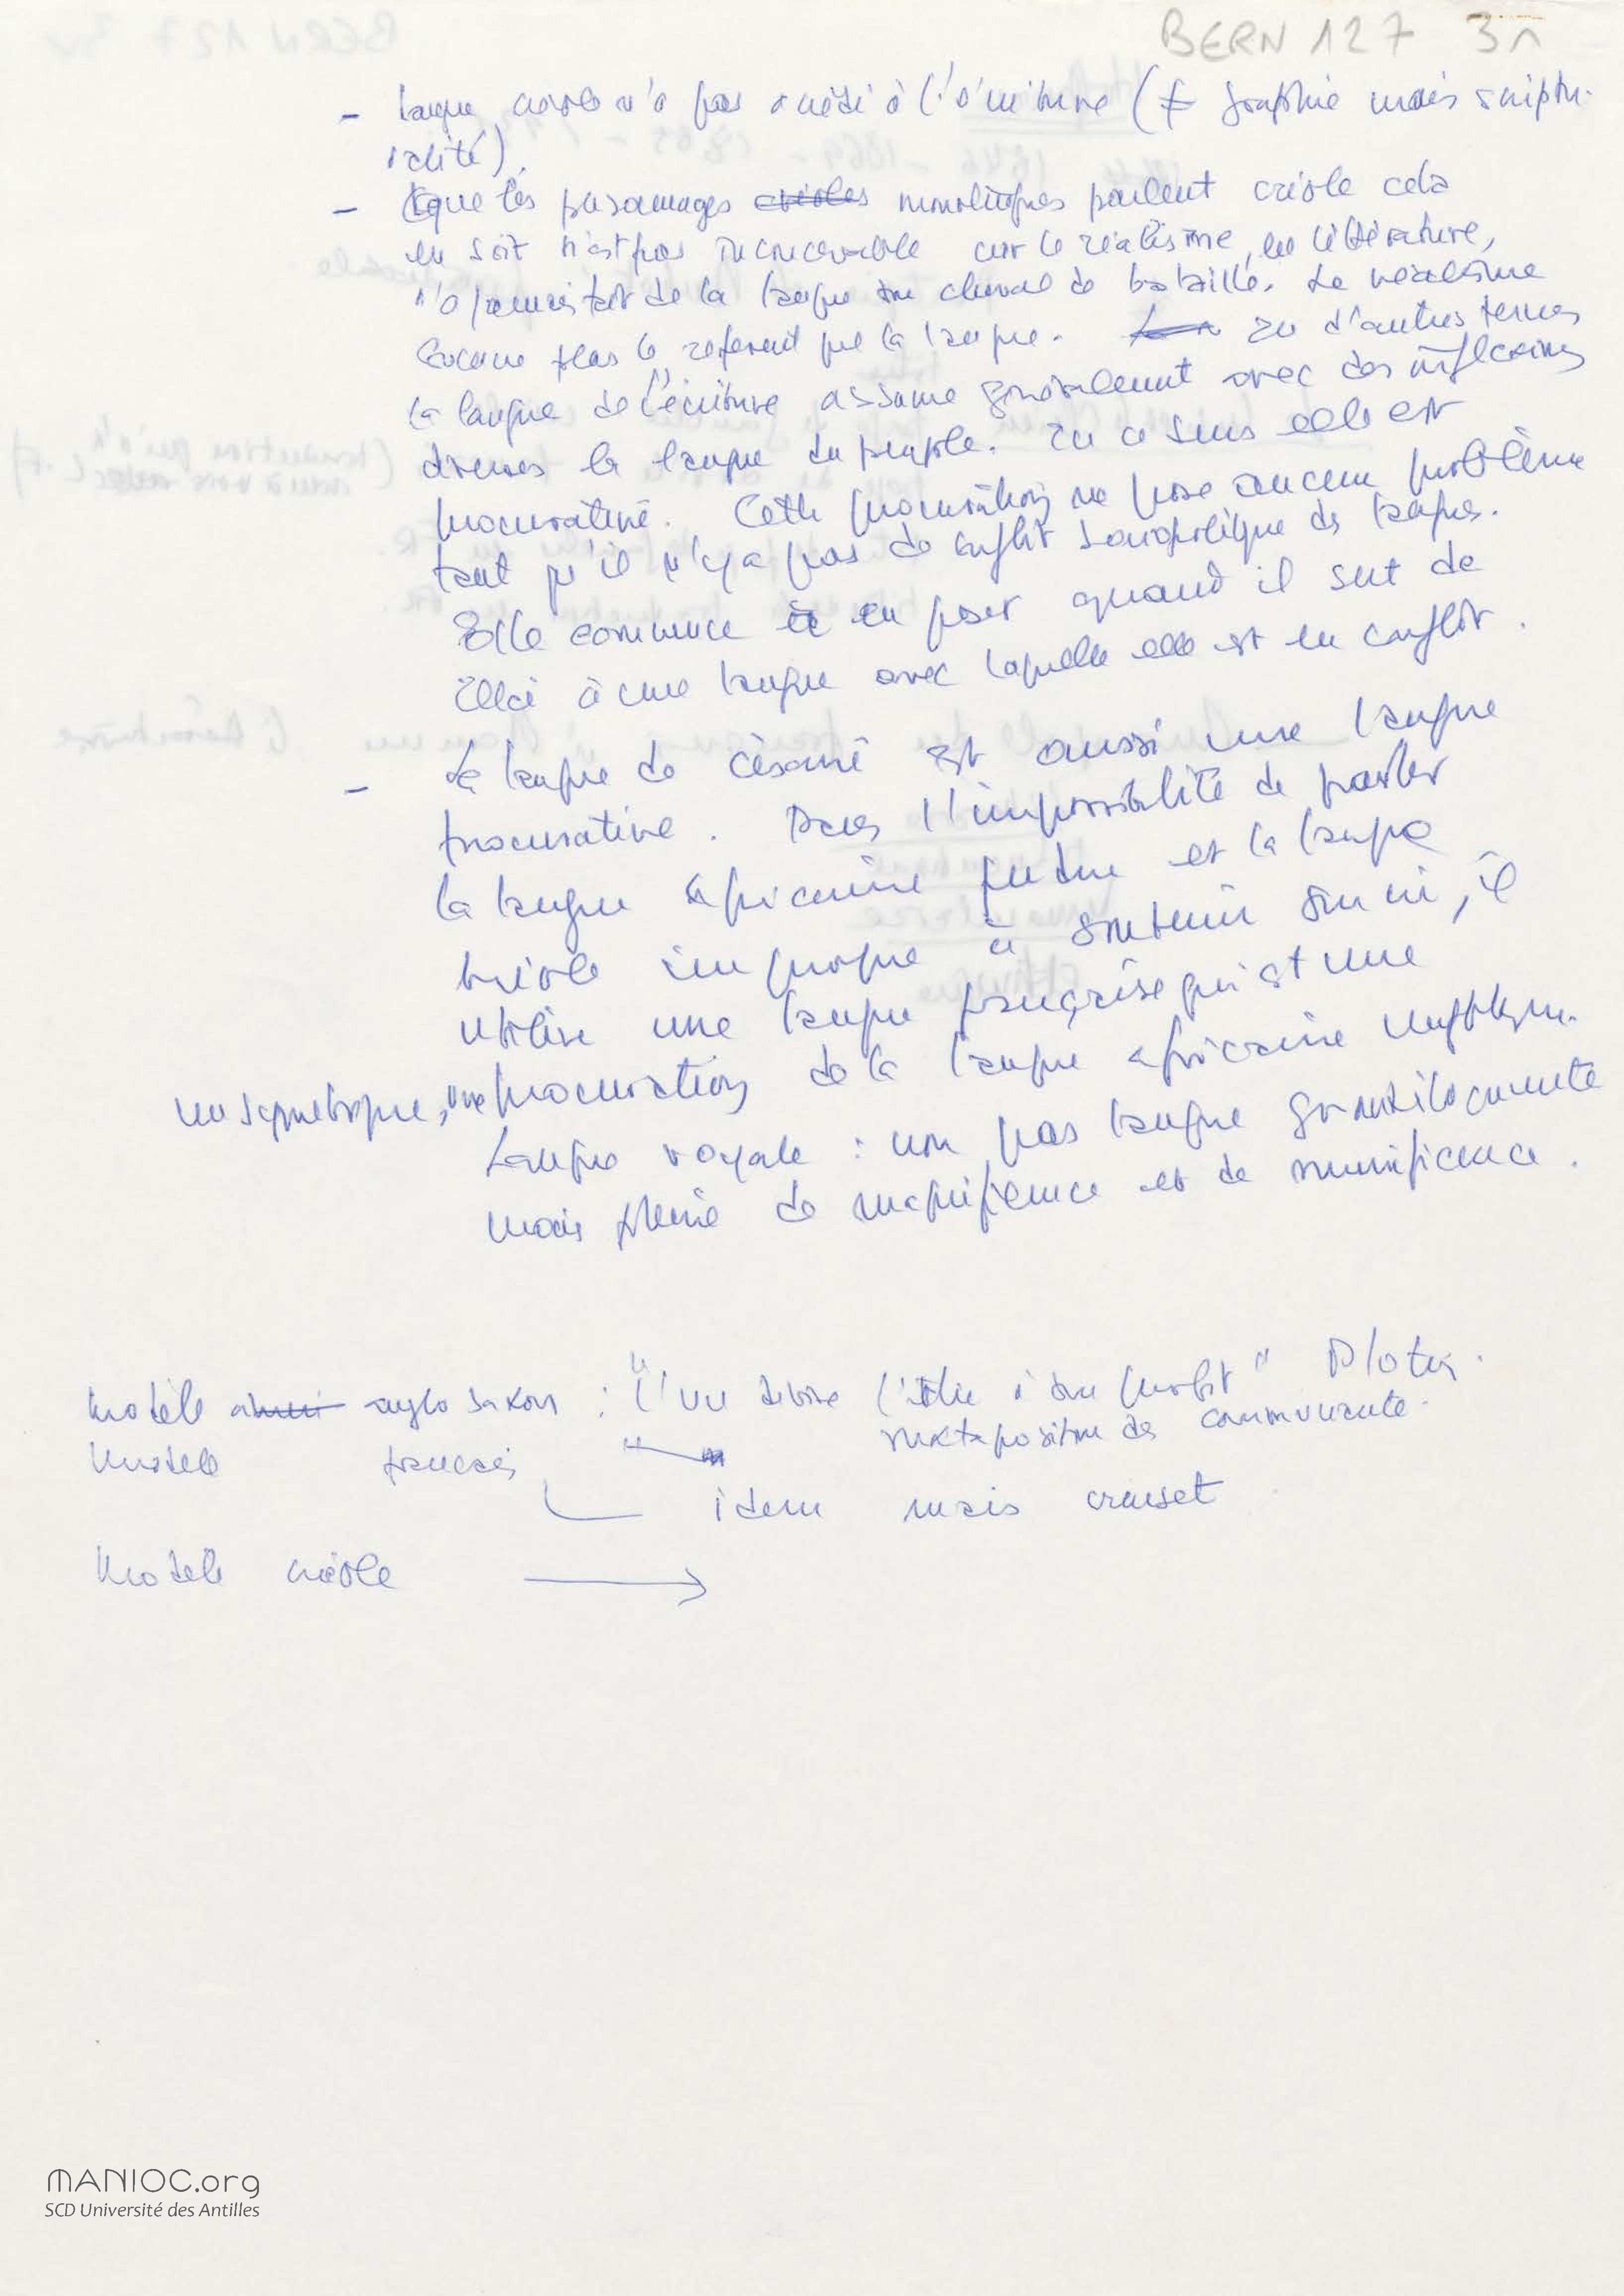 BERN 127 3r
- langue créole n'a pas accédé à l'écriture (≠ graphie mais scriptu-
ralité).
- Que les personnages créoles monolingues parlent créole cela
en soit n'est pas inconcevable car le réalisme, en littérature,
n'a jamais fait de la langue son cheval de bataille. Le réalisme
concerne plus le référent que la langue. En d'autres termes
la langue de l'écriture assume généralement avec des inflexions
diverses la langue du peuple. En ce sens elle est
procurative. Cette procuration ne pose aucun problème
tant qu'il n'y a pas de conflit sociopolitique des langues.
Elle commence à en poser quand il sert de
à une langue avec laquelle elle est en conflit.
- La langue de Césaire est aussi une langue
procurative. Dans l'impossibilité de parler
la langue africaine perdue et la langue
créole impropre à soutenir son cri, il
utilise une langue française qui est une
procuration de la langue africaine
une
Langue royale : non pas langue grandiloquente
mais pleine de magnificence et de munificence.
Modèle anglo saxon : "L'un dévore l'autre à son profit" Plotin.
juxtaposition de communauté.
Modèle français
idem mais creuset
Modèle créole →
MANIOC.org
SCD Université des Antilles